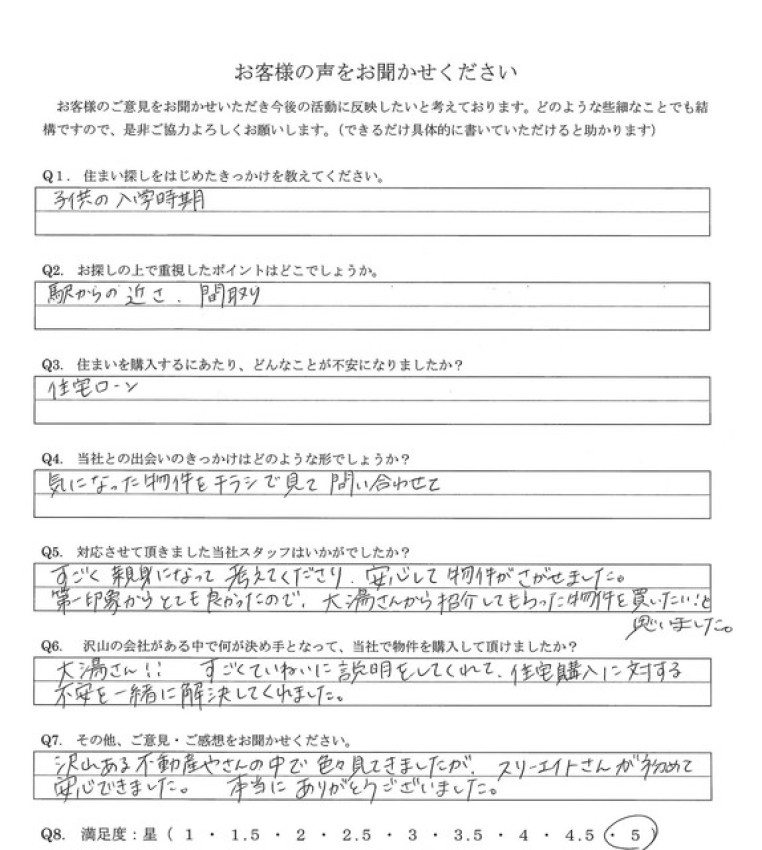 お客様の声をお聞かせください
お客様のご意見をお聞かせいただき今後の活動に反映したいと考えております。どのような些細なことでも結
構ですので、是非ご協力よろしくお願いします。(できるだけ具体的に書いていただけると助かります)
Q1. 住まい探しをはじめたきっかけを教えてください。
子供の入学時期
Q2. お探しの上で重視したポイントはどこでしょうか。
駅からの近さ、間取り
Q3. 住まいを購入するにあたり、どんなことが不安になりましたか？
住宅ローン
Q4. 当社との出会いのきっかけはどのような形でしょうか？
気になった物件をチラシで見て問い合わせて
Q5. 対応させて頂きました当社スタッフはいかがでしたか？
すごく親身になって考えてくださり、安心して物件がさがせました。
第一印象からとても良かったので、大湯さんから紹介してもらった物件を買いたい!と
思いました。
Q6. 沢山の会社がある中で何が決め手となって、当社で物件を購入して頂けましたか？
大湯さん!! すごくていねいに説明をしてくれて、住宅購入に対する
不安を一緒に解決してくれました。
Q7. その他、ご意見・ご感想をお聞かせください。
沢山ある不動産やさんの中で色々見てきましたが、スリーエイトさんが初めて
安心できました。 本当にありがとうございました。
Q8. 満足度：星（ 1 ・ 1.5 ・ 2 ・ 2.5 ・ 3 ・ 3.5 ・ 4 ・ 4.5 ・ 5 ）